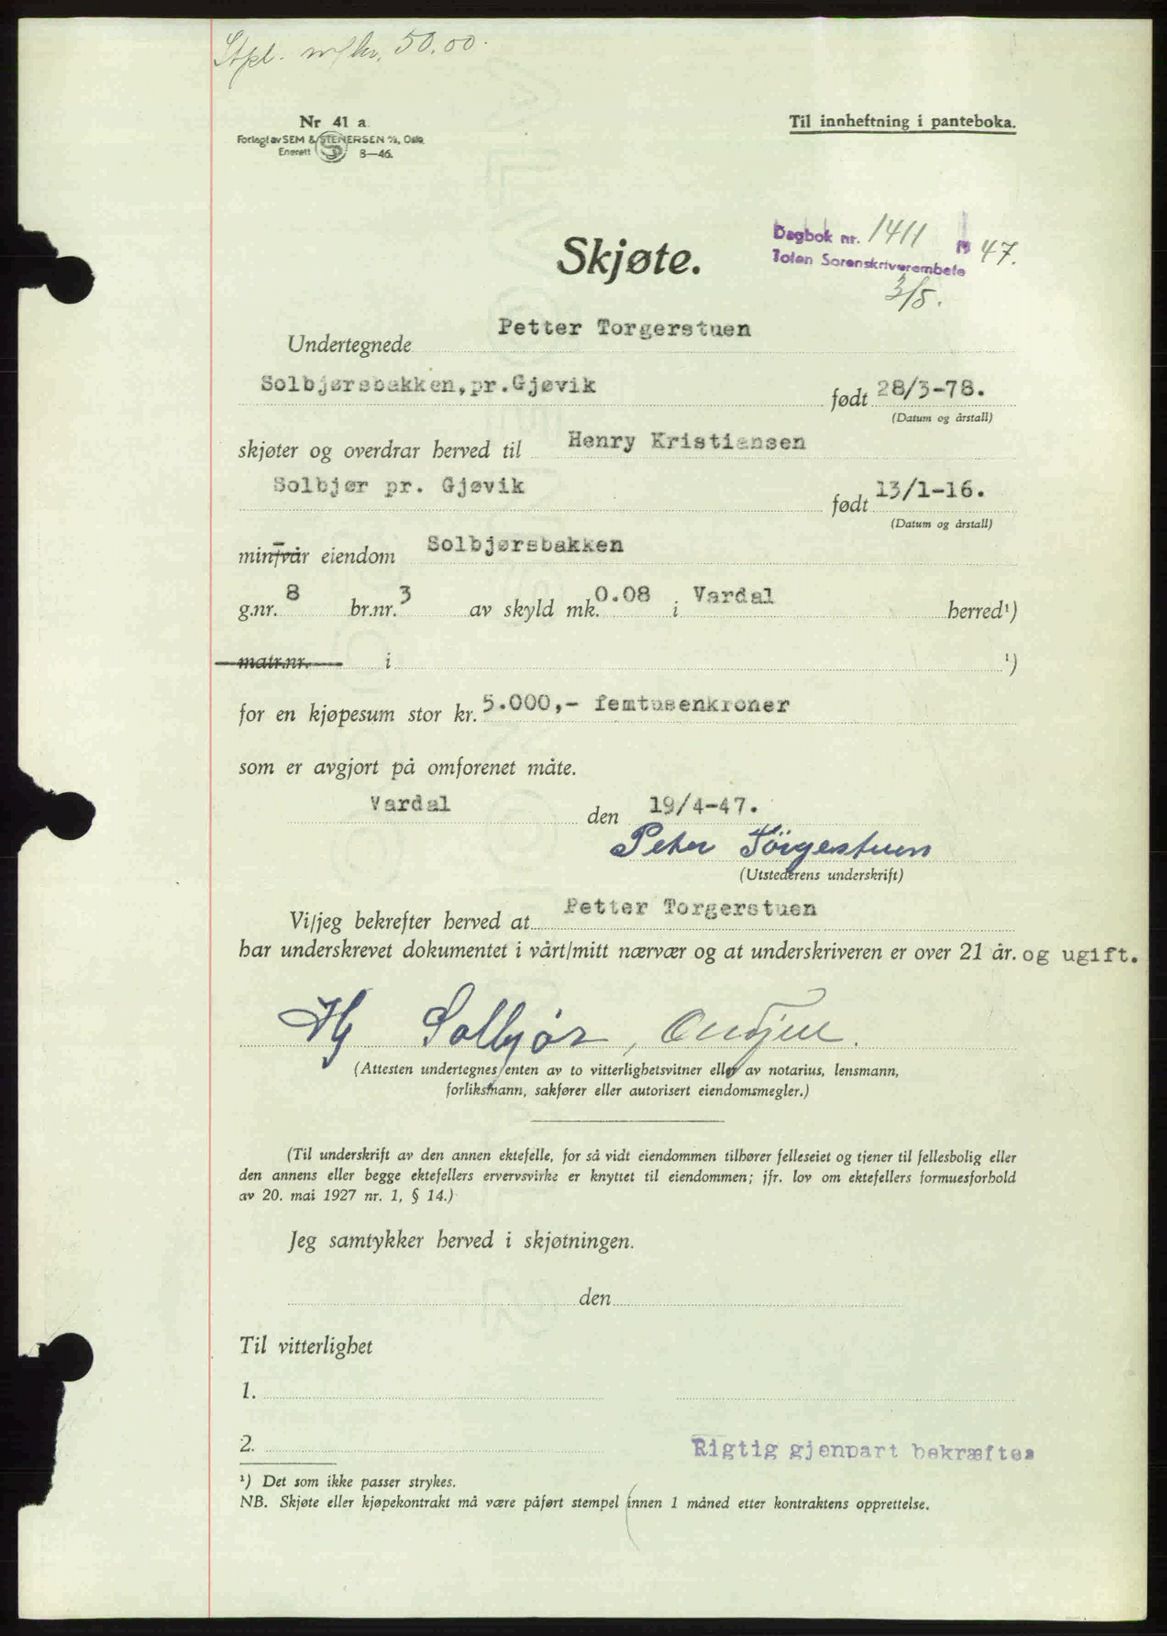 Stpl. m/kr. 50.00.
Nr 41 a
Til innheftning i panteboka.
Forlagt av SEM & STENERSEN A/S, Oslo
Enerett 8—46.
Dagbok nr. 1411 19 47.
Toten Sorenskriverembete
3/5.
Skjøte.
Undertegnede Petter Torgerstuen
Solbjørsbakken, pr. Gjøvik født 28/3-78.
(Datum og årstall)
skjøter og overdrar herved til Henry Kristiansen
Solbjør pr. Gjøvik født 13/1-16.
(Datum og årstall)
min/vår eiendom Solbjørsbakken
g.nr. 8 br.nr. 3 av skyld mk. 0.08 i Vardal herred¹)
matr.nr. i ¹)
for en kjøpesum stor kr. 5.000,- femtusenkroner
som er avgjort på omforenet måte.
Vardal den 19/4-47.
Peter Torgestuen
(Utstederens underskrift)
Vi/jeg bekrefter herved at Petter Torgerstuen
har underskrevet dokumentet i vårt/mitt nærvær og at underskriveren er over 21 år. og ugift.
Hj Solbjør,
(Attesten undertegnes enten av to vitterlighetsvitner eller av notarius, lensmann,
forliksmann, sakfører eller autorisert eiendomsmegler.)
(Til underskrift av den annen ektefelle, for så vidt eiendommen tilhører felleseiet og tjener til fellesbolig eller
den annens eller begge ektefellers ervervsvirke er knyttet til eiendommen; jfr. lov om ektefellers formuesforhold
av 20. mai 1927 nr. 1, § 14.)
Jeg samtykker herved i skjøtningen.
den
Til vitterlighet
1.
2.
Rigtig gjenpart bekræftes
¹) Det som ikke passer strykes.
NB. Skjøte eller kjøpekontrakt må være påført stempel innen 1 måned etter kontraktens opprettelse.